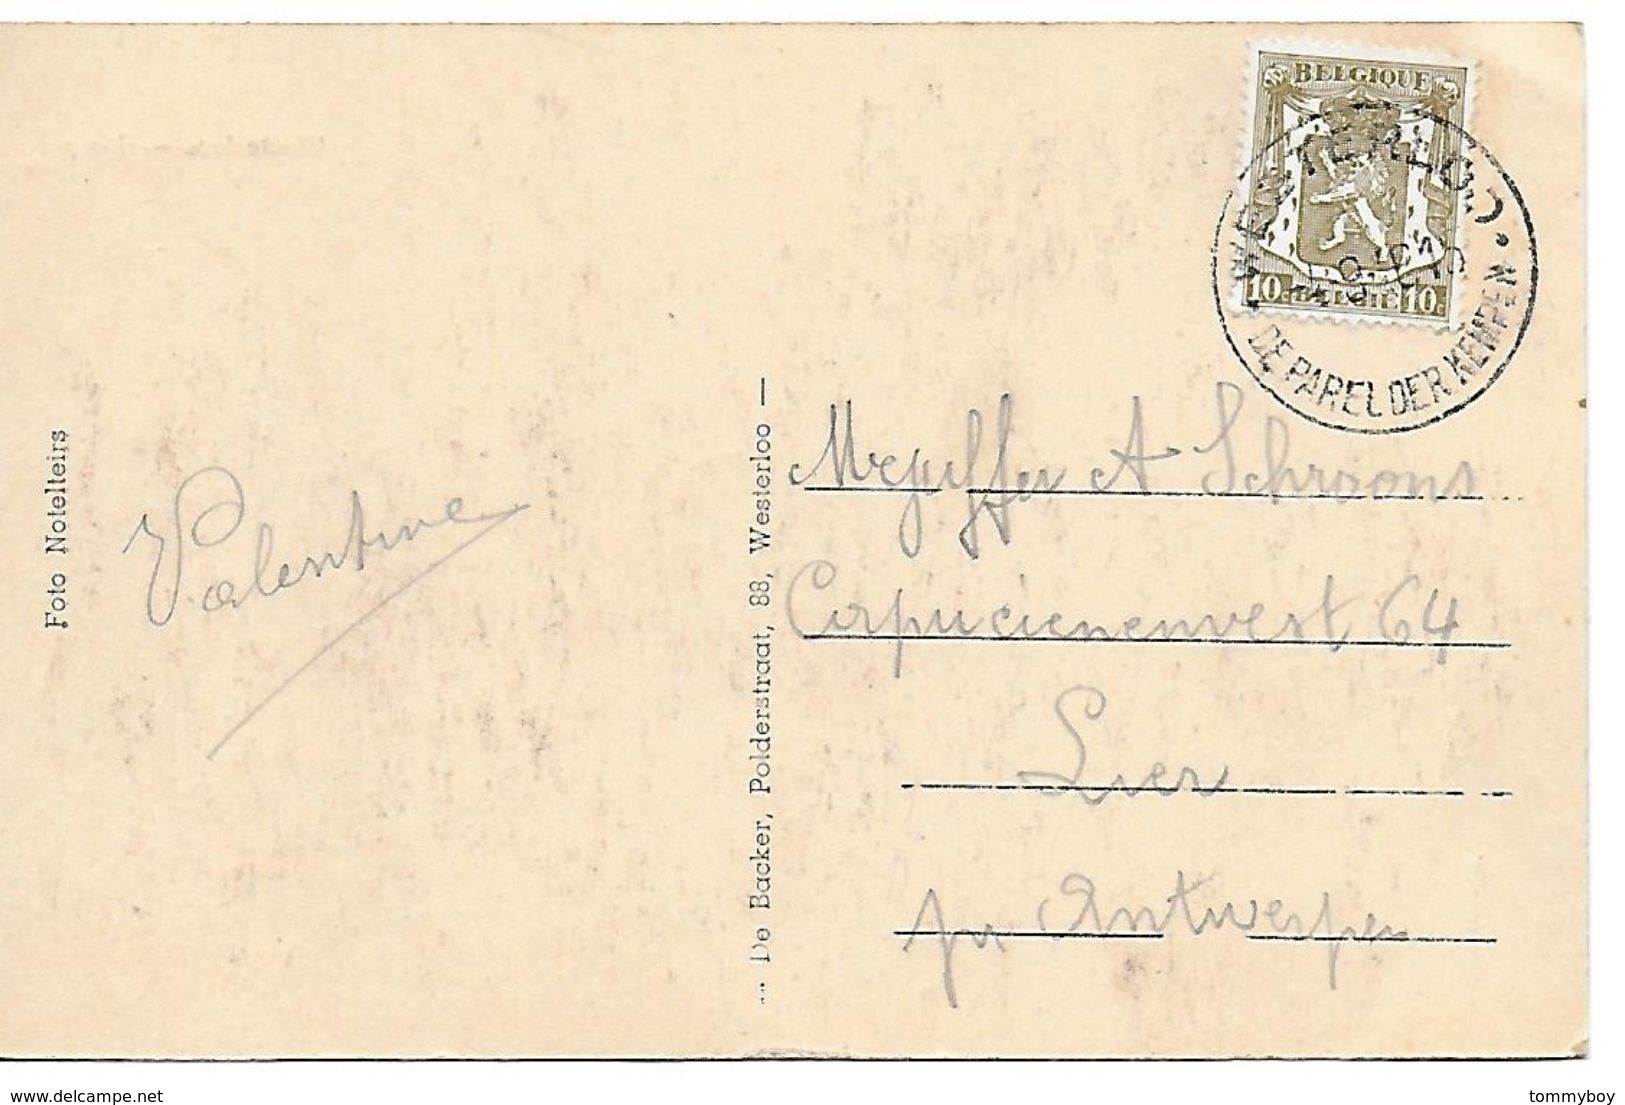 BELGIQUE
10c BELGIE 10c
WESTERLOO
DE PAREL DER KEMPEN
Foto Notelteirs
Valentine
De Backer, Polderstraat, 88, Westerloo —
Mejuffer A Schroons
Corpucienenvest 64
Lier
per Antwerpen
delcampe.net
tommyboy